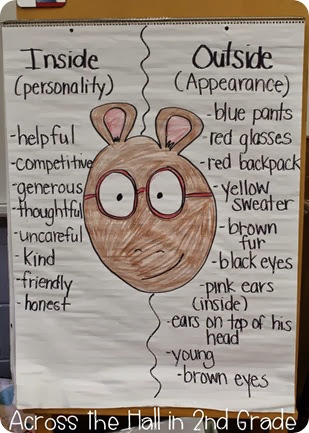 Inside
(personality)
-helpful
-competitive
-generous
-thoughtful
-uncareful
-Kind
-friendly
-honest
Outside
(Appearance)
-blue pants
-red glasses
-red backpack
-yellow
sweater
-brown
fur
-black eyes
-pink ears
(inside)
-ears on top of his
head
-young
-brown eyes
Across the Hall in 2nd Grade